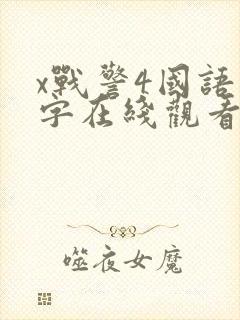 x戰警4國語
字在綫觀看
噬夜女魔